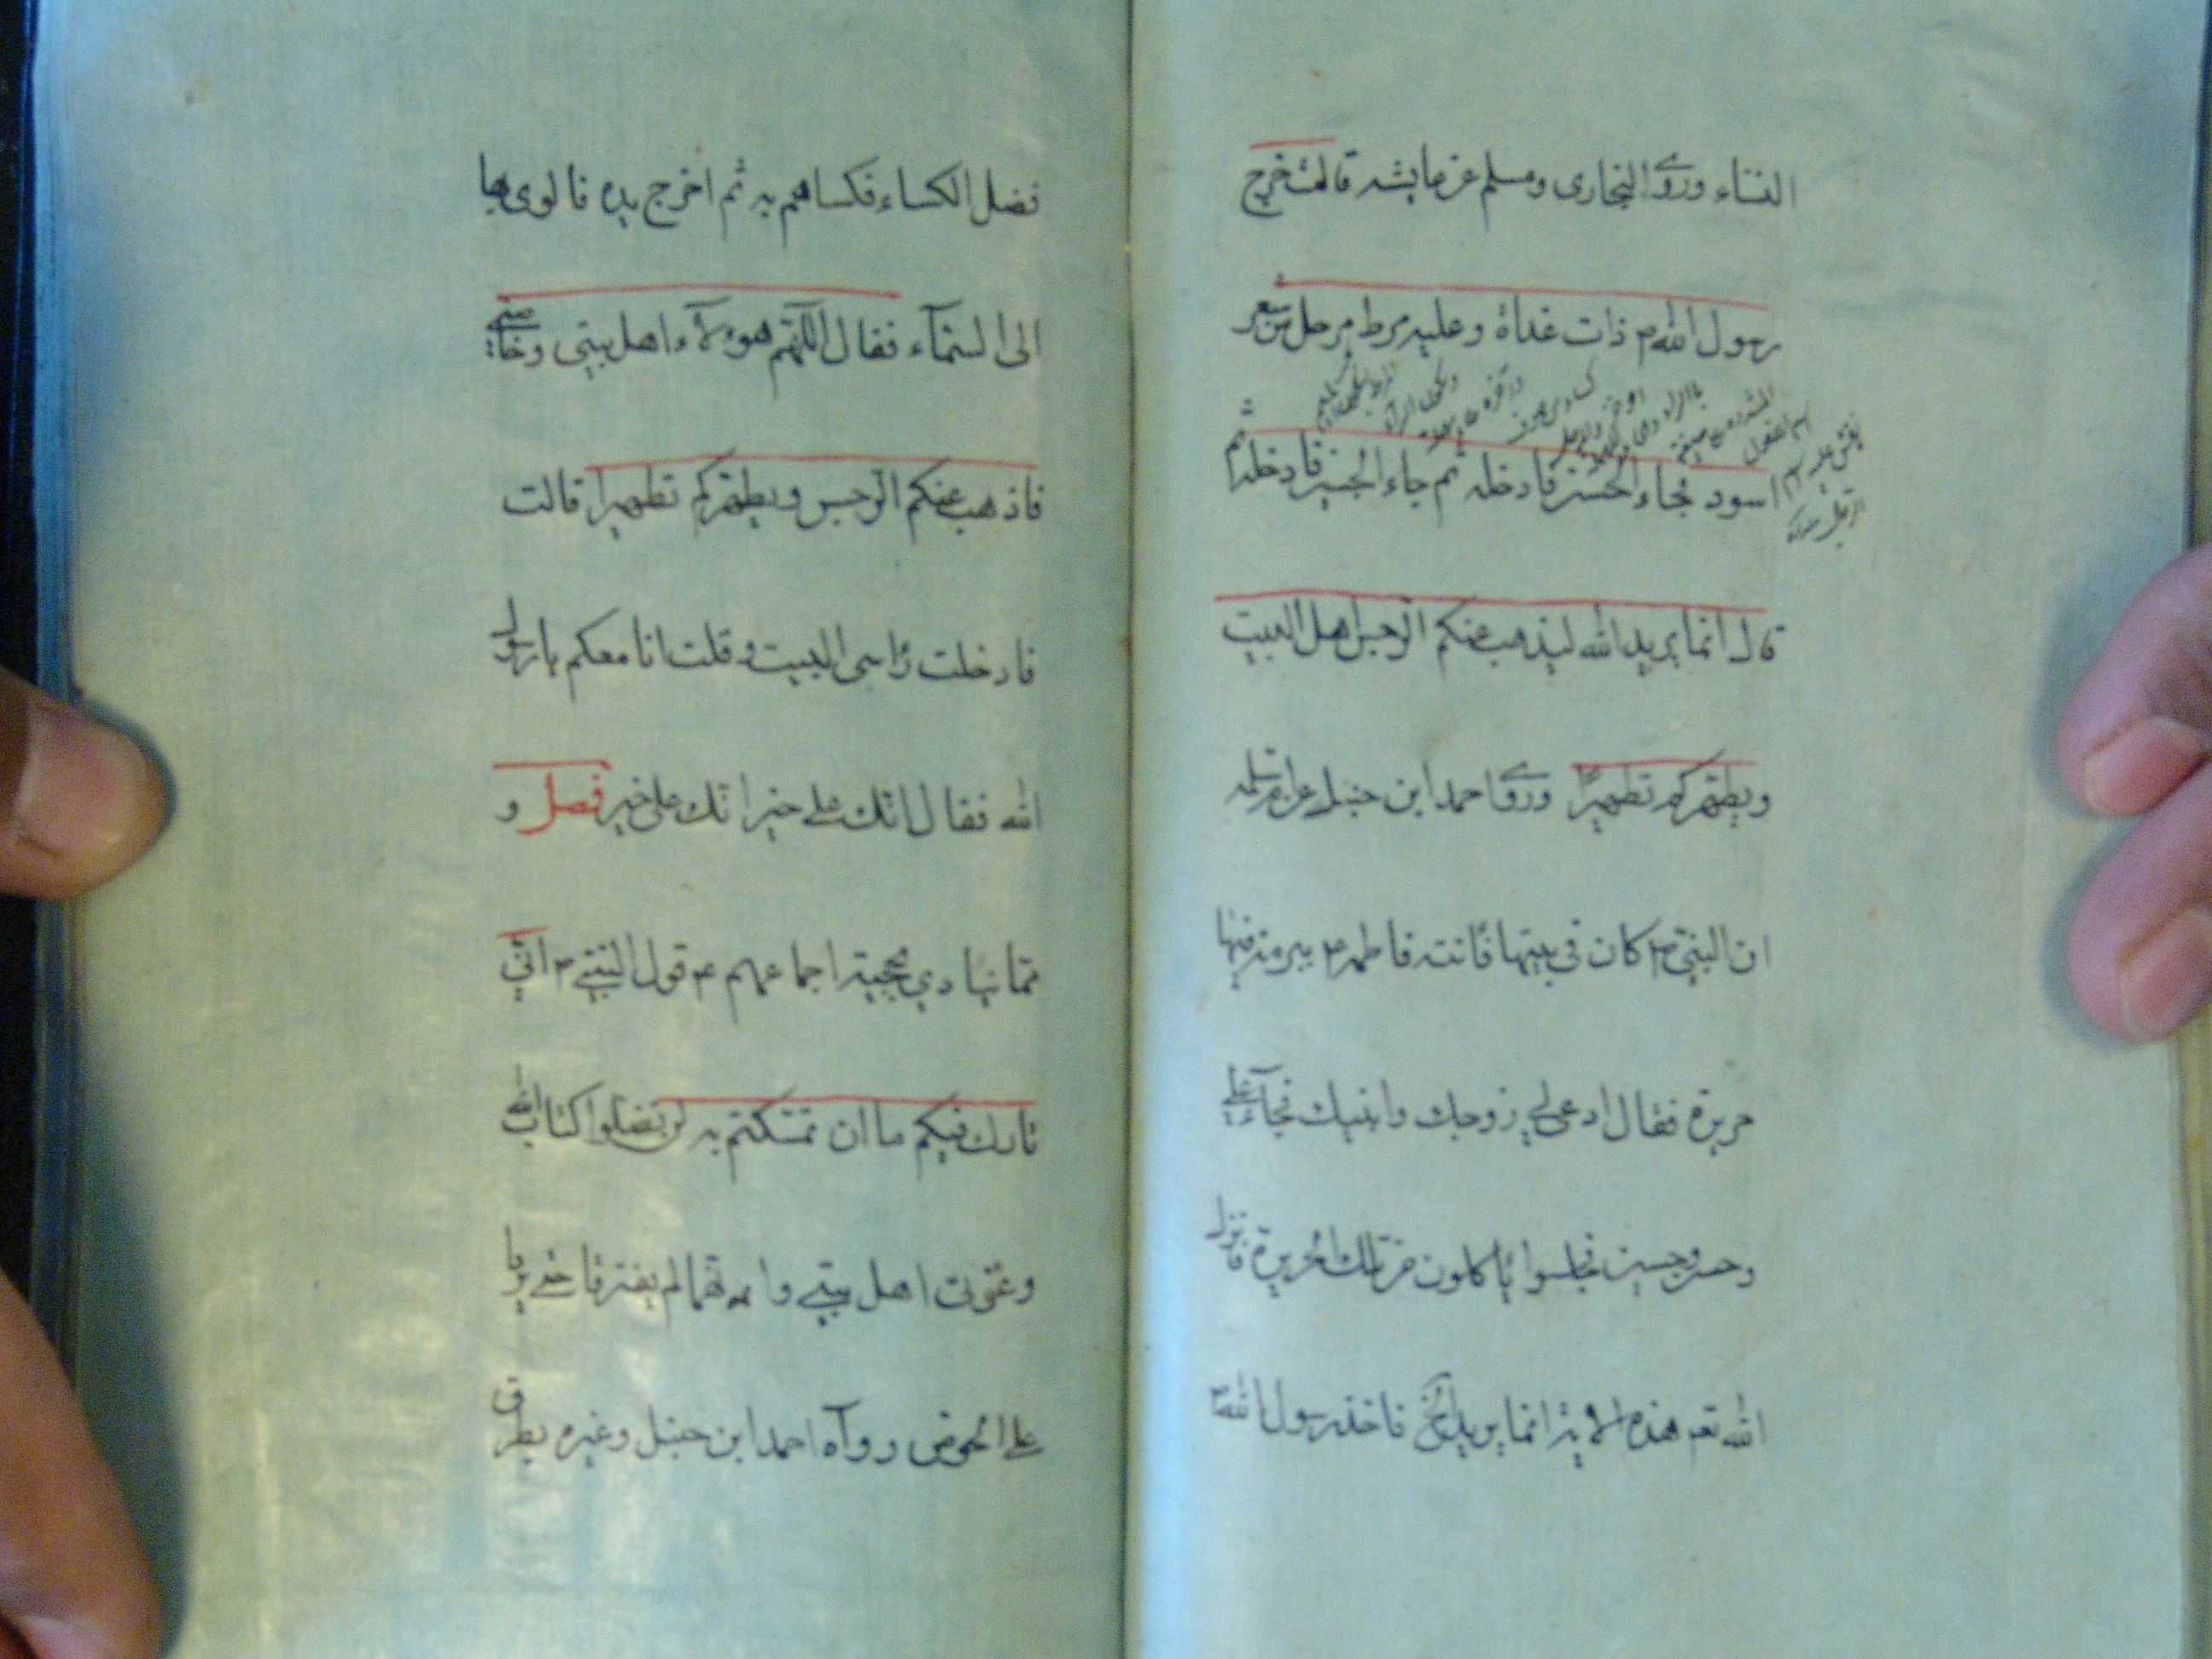 النساء وروى البخارى ومسلم عن عايشه قالت خرج
رسول الله م ذات غداة وعليه مرط مرحل من شعر
اسود فجاء الحسن فادخله ثم جاء الحسين فادخله ثم
قال انما يريد الله ليذهب عنكم الرجس اهل البيت
ويطهركم تطهيرا وروى احمد ابن حنبل عن ام سلمه
ان النبي ص كان في بيتها فاتته فاطمه ع ببرمة فيها
حريرة فقال ادعى لي زوجك وابنيك فجاء علي
وحسن وحسين فجلسوا ياكلون من تلك الحريرة فانزل
الله تعم هذه الاية انما يريد الخ فاخذ رسول الله ص
فضل الكساء فكساهم به ثم اخرج يده فالوى بها
الى السماء فقال اللهم هولاء اهل بيتي وخاصتي
فاذهب عنكم الرجس ويطهركم تطهيرا قالت
فادخلت راسى البيت وقلت انا معكم يا رسول
الله فقال انك على خير انك على خير فصل و
مما ينادي بحجية اجماعهم ع قول النبي ص اني
تارك فيكم ما ان تمسكتم به لن تضلوا كتاب الله
وعترتي اهل بيتي وانهما لم يفترقا حتى يردا
على الحوض رواه احمد ابن حنبل وغيره بطرق